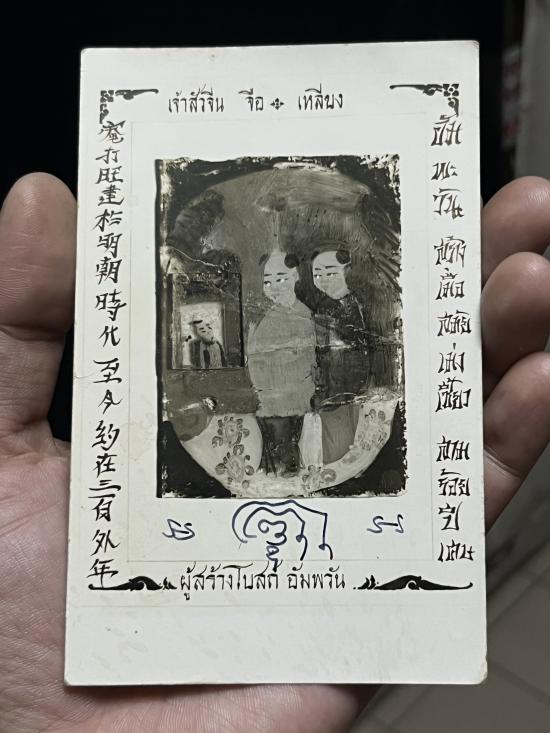 เจ้าสัวจีน จือ เหลียง
庵打旺建於明朝時代至今約在三百外年
อัม
พะ
วัน
สร้าง
เมื่อ
สมัย
เหม่ง
เชี้ยว
สาม
ร้อย
ปี
เศษ
ผู้สร้างโบสถ์ อัมพวัน